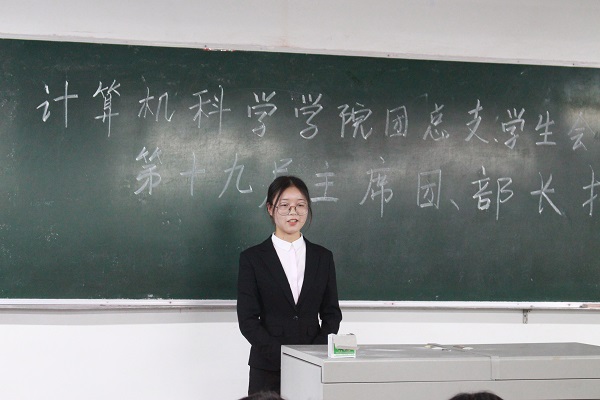 计算机科学学院团总支、学生会
第十九届主席团、部长